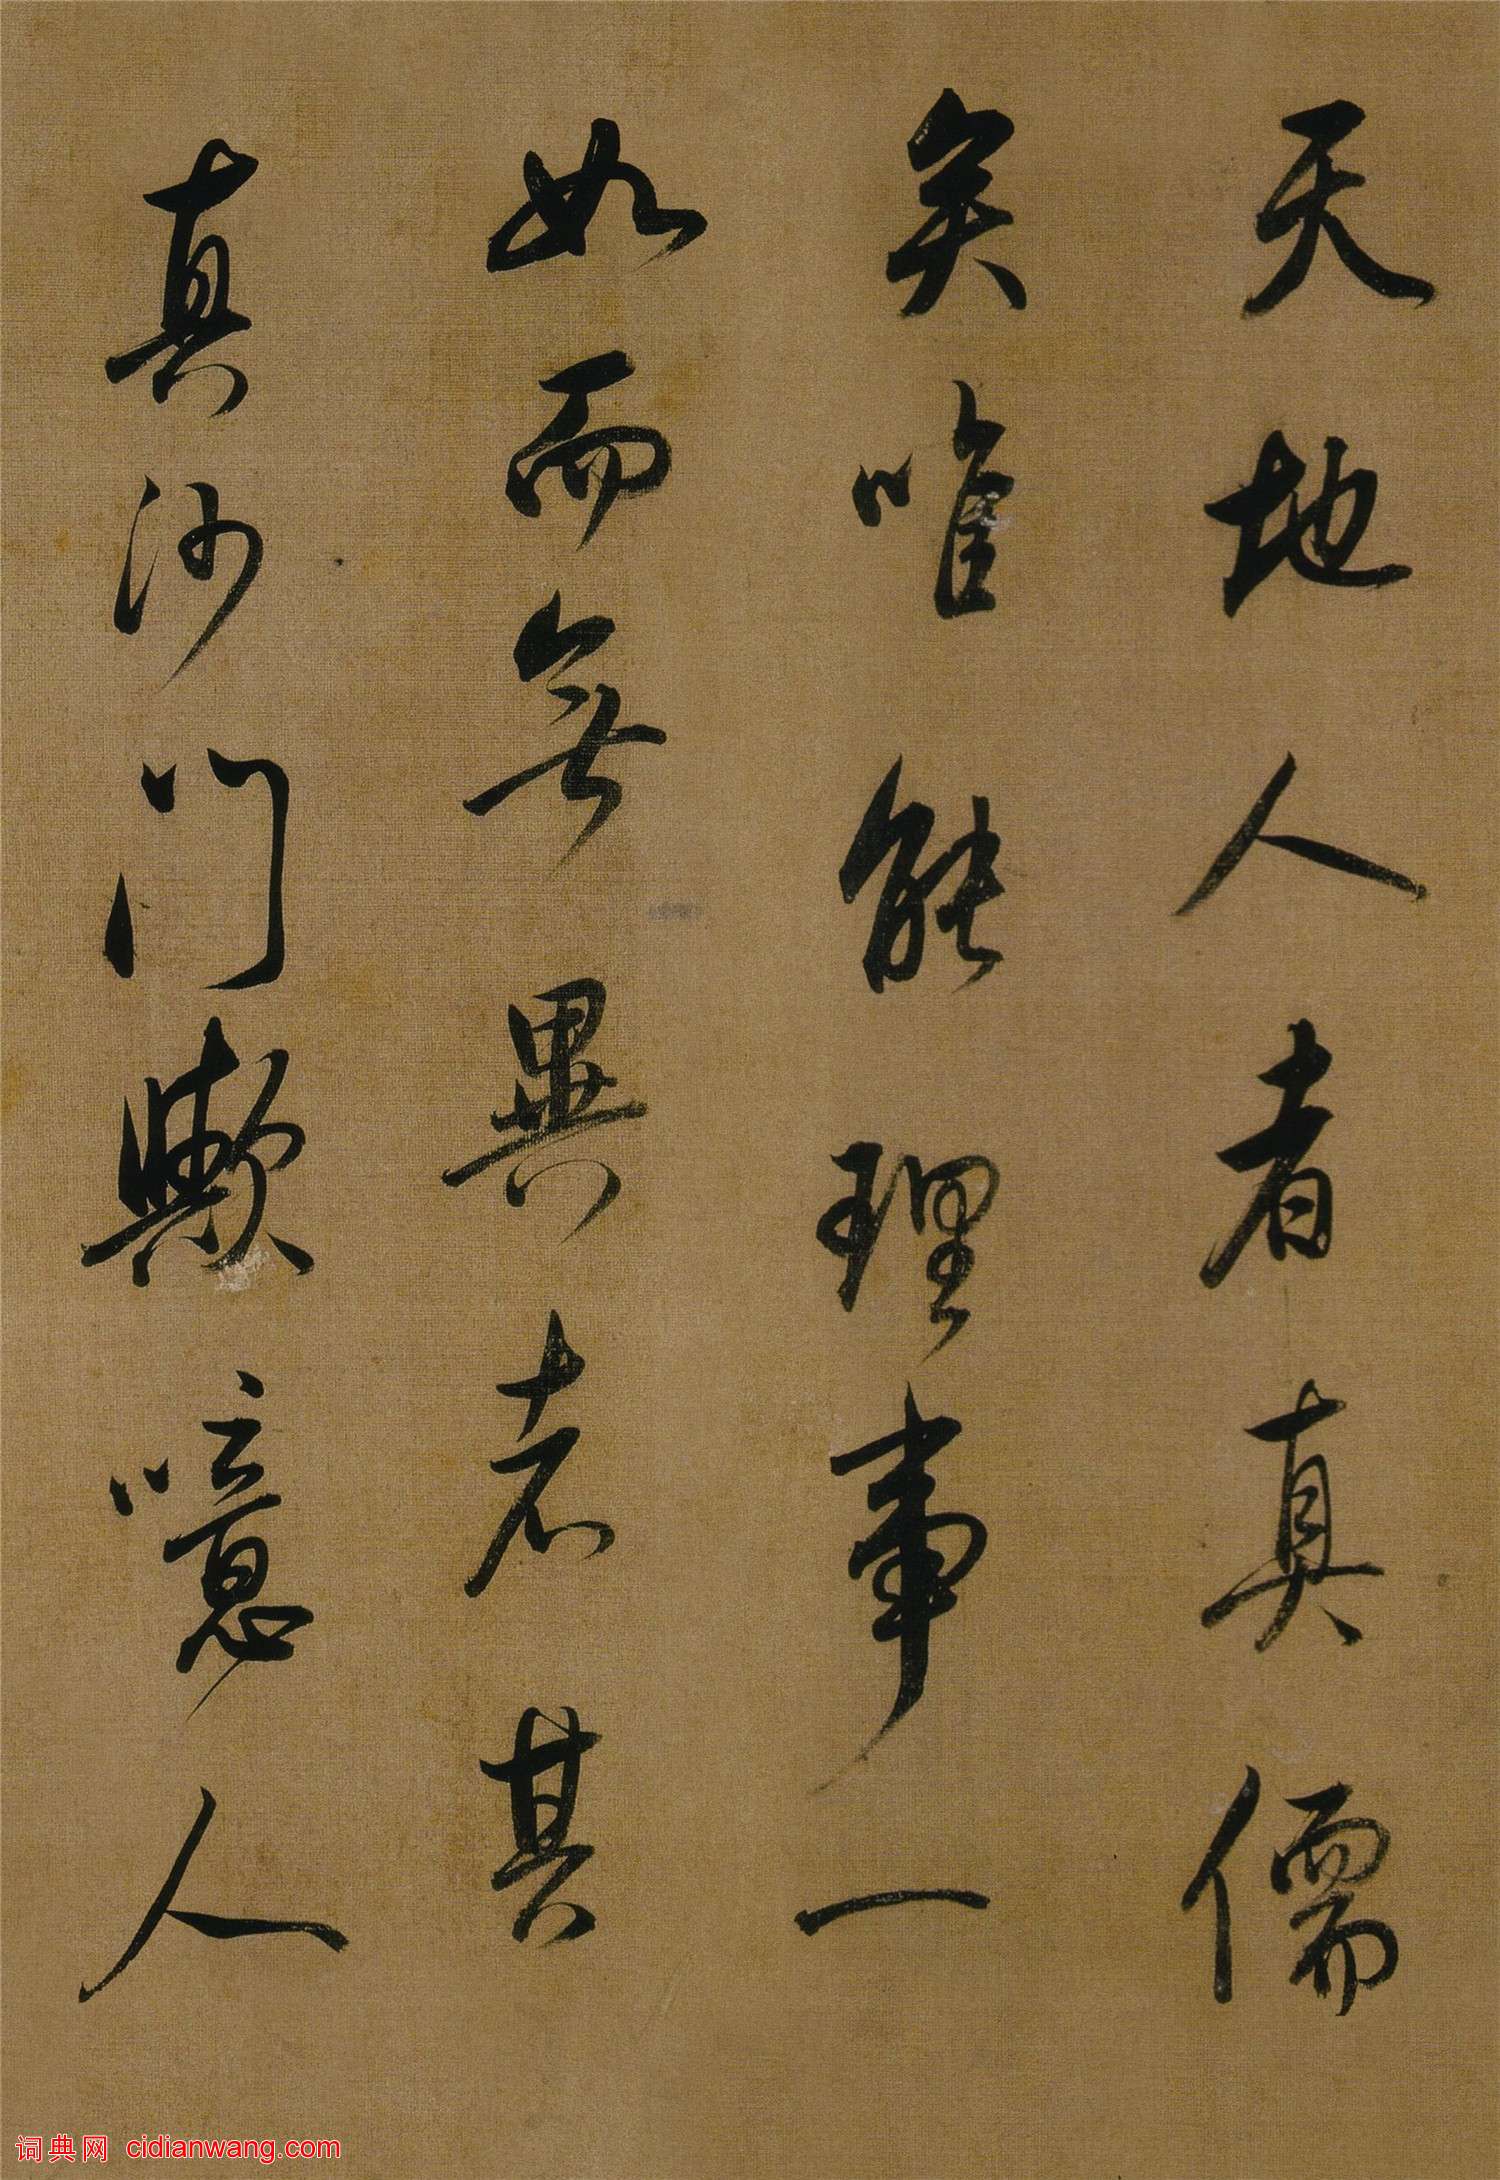 天地人者真儒
矣唯能理事一
如而無異者其
真沙门歟噫人
词典网 cidianwang.com